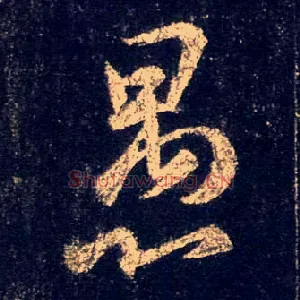 愚
Shufawang.cn